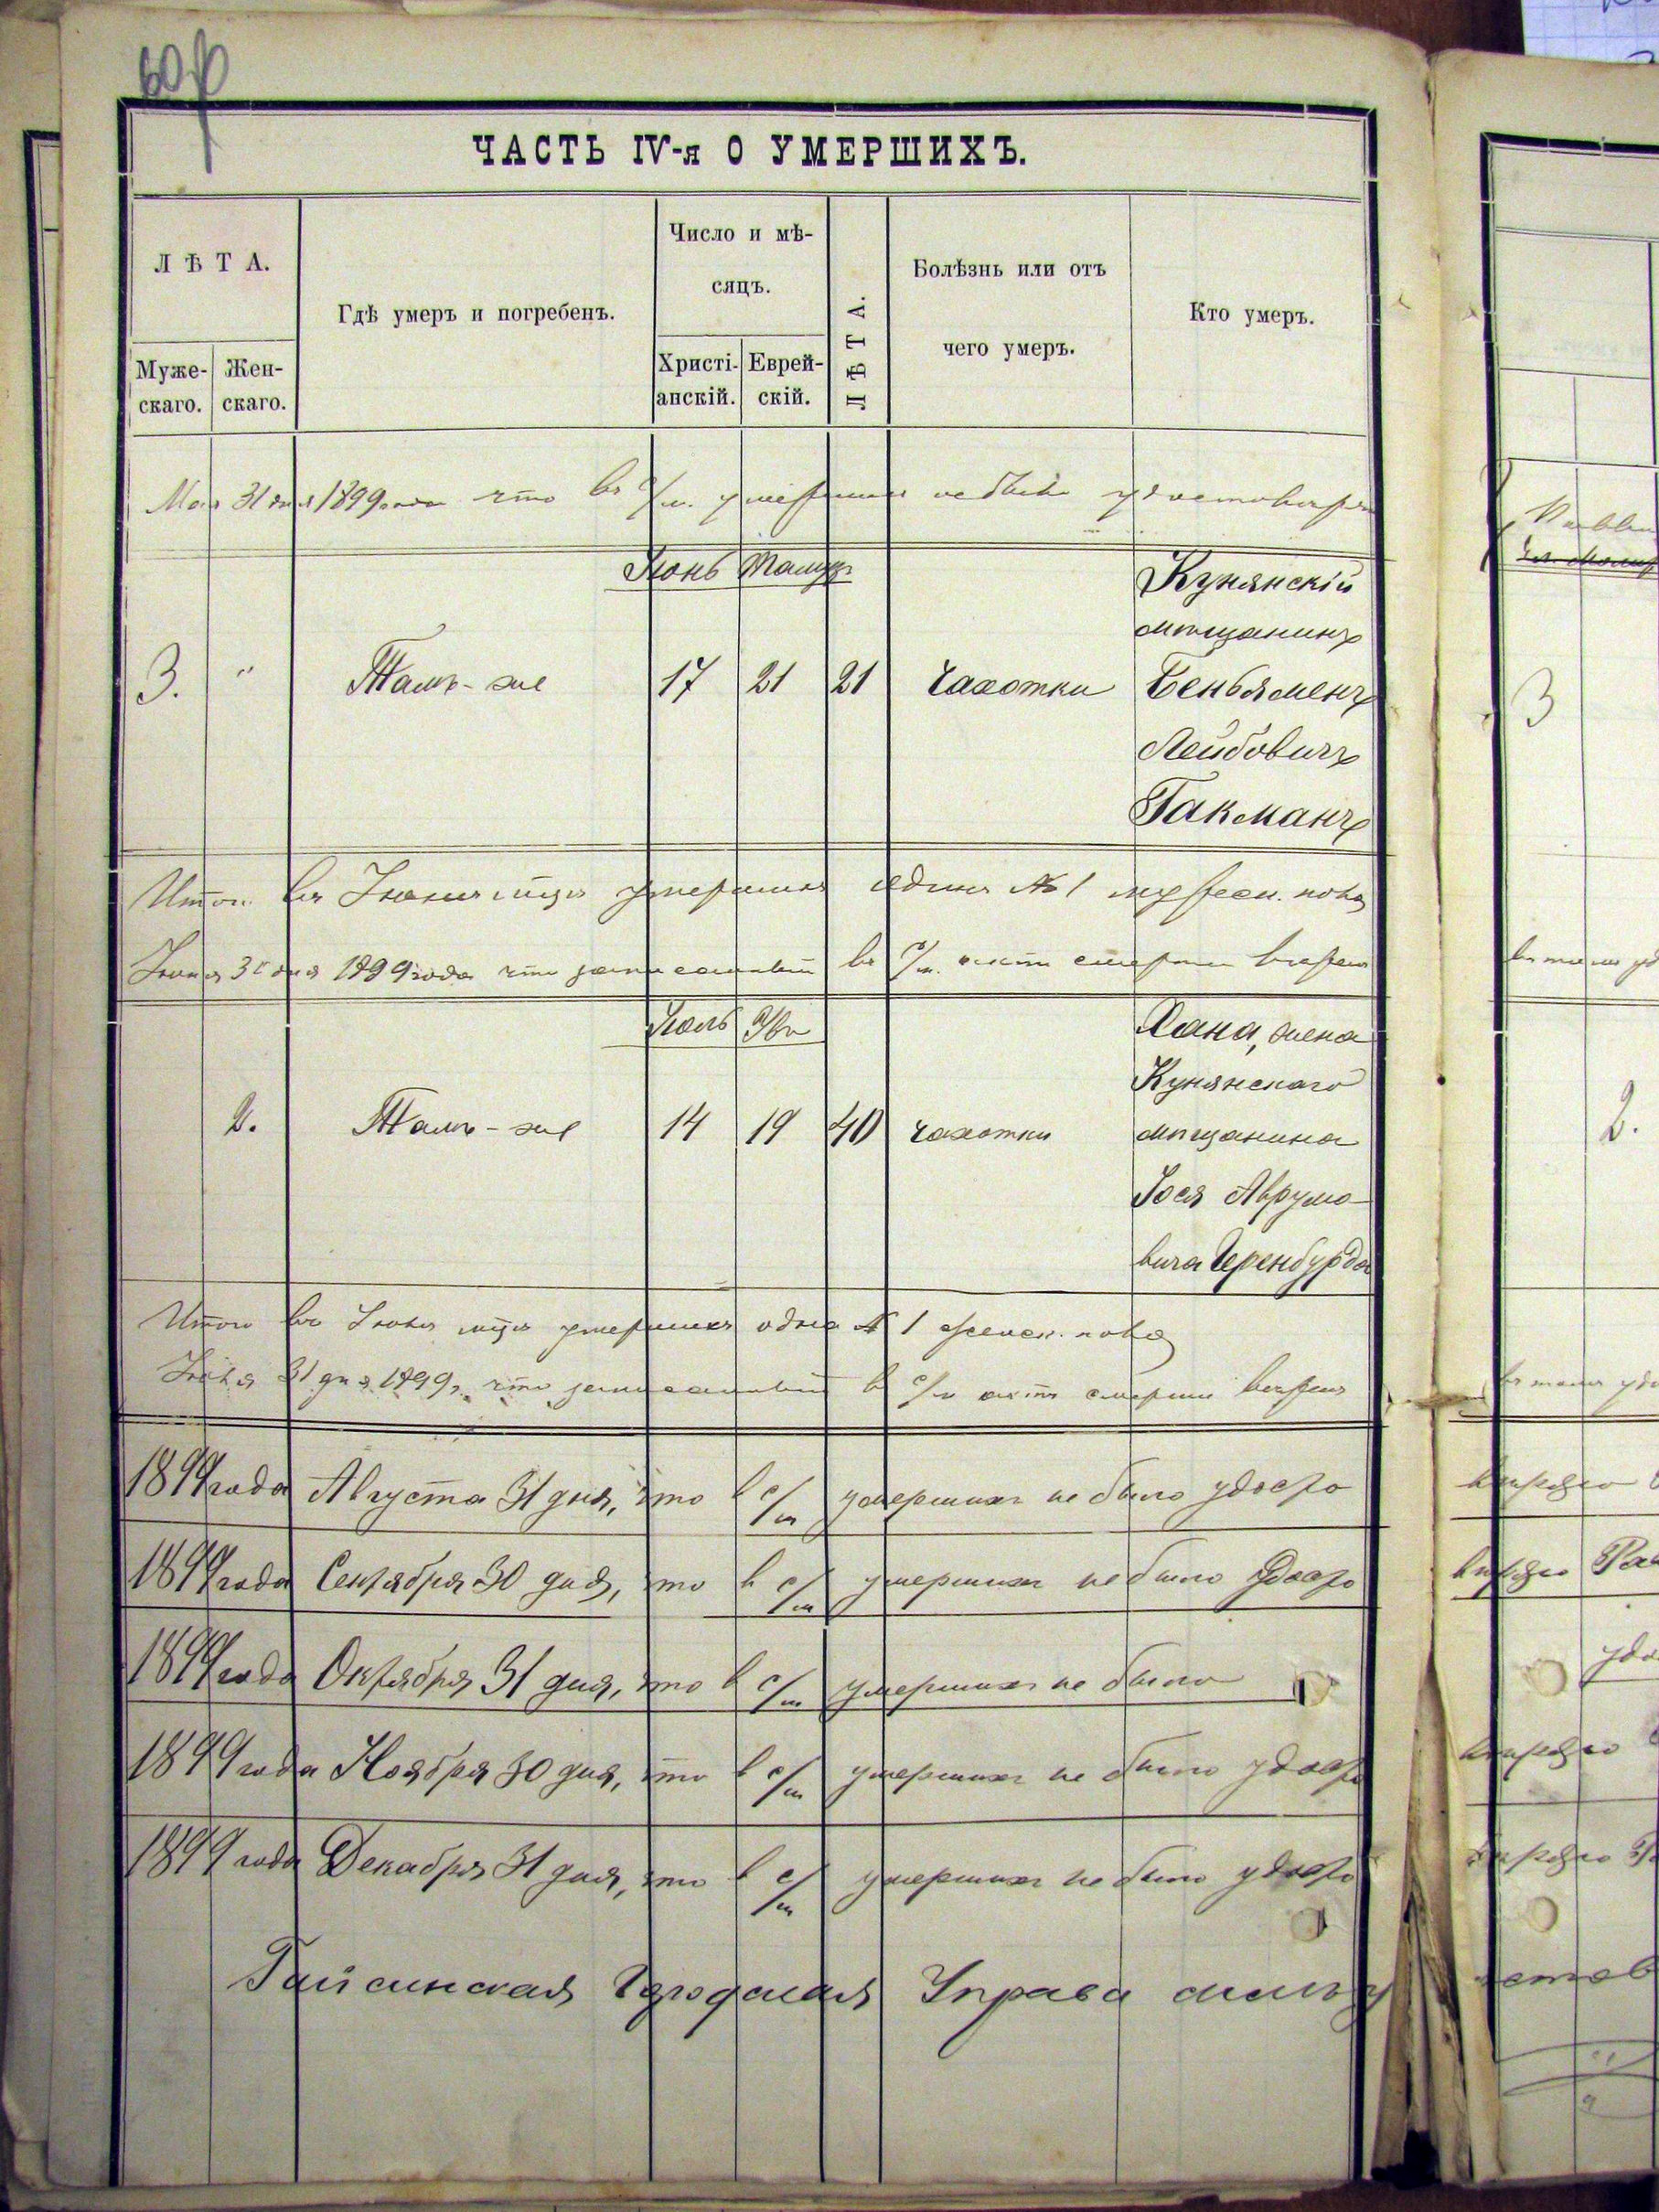 ЧАСТЬ IV-я О УМЕРШИХЪ.
ЛѢТА.
Муже-
скаго.
Жен-
скаго.
Гдѣ умеръ и погребенъ.
Число и мѣ-
сяцъ.
Христі-
анскій.
Еврей-
скій.
ЛѢТА.
Болѣзнь или отъ
чего умеръ.
Кто умеръ.
Мая 31 дня 1899 года что въ с/м. умершихъ не было удостовѣря
Іюнь Тамузъ
3. " Тамъ-же 17 21 21 чахотки
Кунянскій
мѣщанинъ
Беньяменъ
Лейбовичъ
Гакманъ
Итого въ Іюнѣ мѣсяцѣ умершихъ одинъ № 1 мужеск. пола
Іюня 30 дня 1899 года что записанный въ с/м. актъ смерти вѣренъ
Іюль Авъ
2. Тамъ-же 14 19 40 чахотки
Хана, жена
Кунянскаго
мѣщанина
Іося Аврумо-
вича Черенбурда
Итого въ Іюлѣ мѣсяцѣ умершихъ одна № 1 женск. пола
Іюля 31 дня 1899 г. что записанный въ с/м актъ смерти вѣренъ
1899 года Августа 31 дня, что в с/м умершихъ не было удосто
1899 года Сентября 30 дня, что в с/м умершихъ не было удосто
1899 года Октября 31 дня, что в с/м умершихъ не было
1899 года Ноября 30 дня, что в с/м умершихъ не было удосто
1899 года Декабря 31 дня, что в с/м умершихъ не было удосто
Гайсинская Городская Управа
3
2.